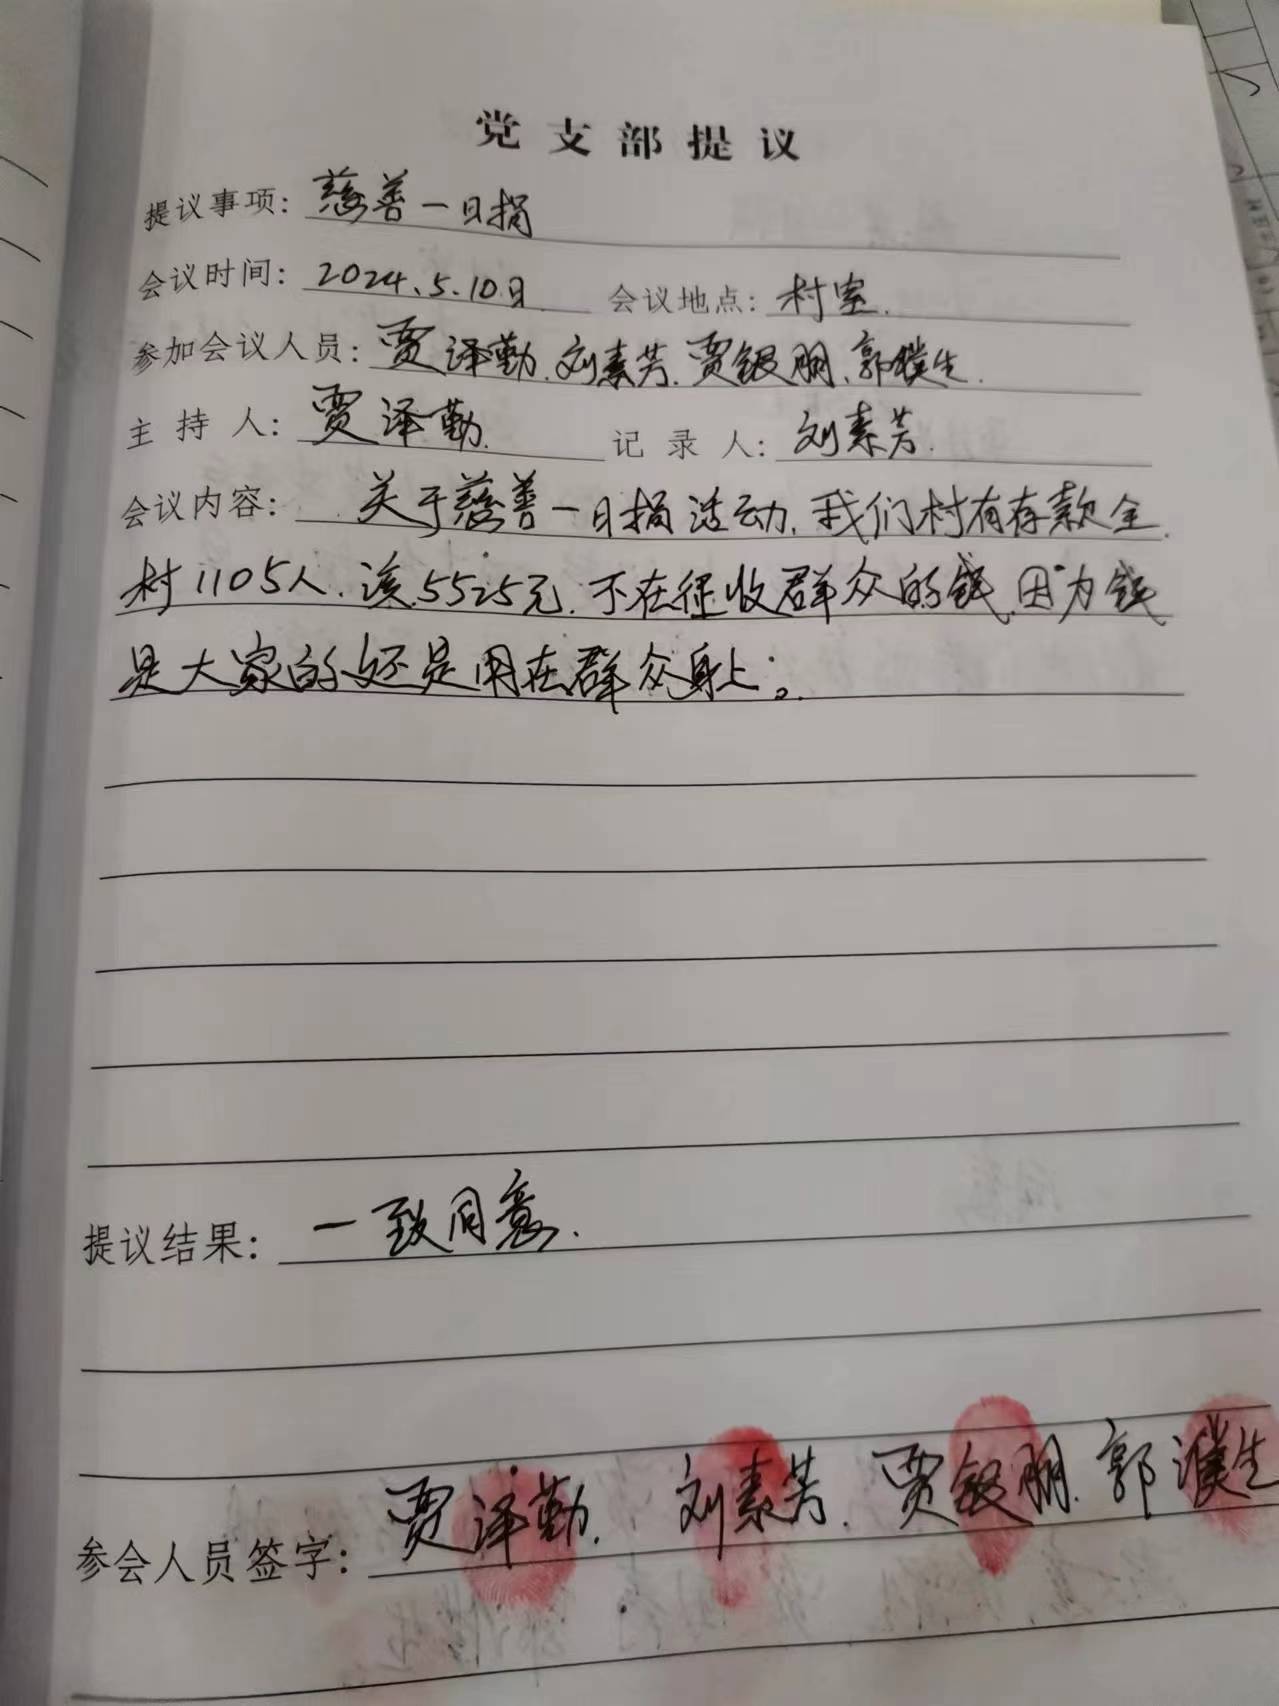 党支部提议
提议事项：慈善一日捐
会议时间：2024.5.10日 会议地点：村室.
参加会议人员：贾泽勤.刘素芳.贾银朋.郭濮生.
主持人：贾泽勤. 记录人：刘素芳.
会议内容：关于慈善一日捐活动.我们村有存款全
村1105人.该5525元.不在征收群众的钱.因为钱
是大家的还是用在群众身上。
提议结果：一致同意.
参会人员签字：贾泽勤.刘素芳.贾银朋.郭濮生